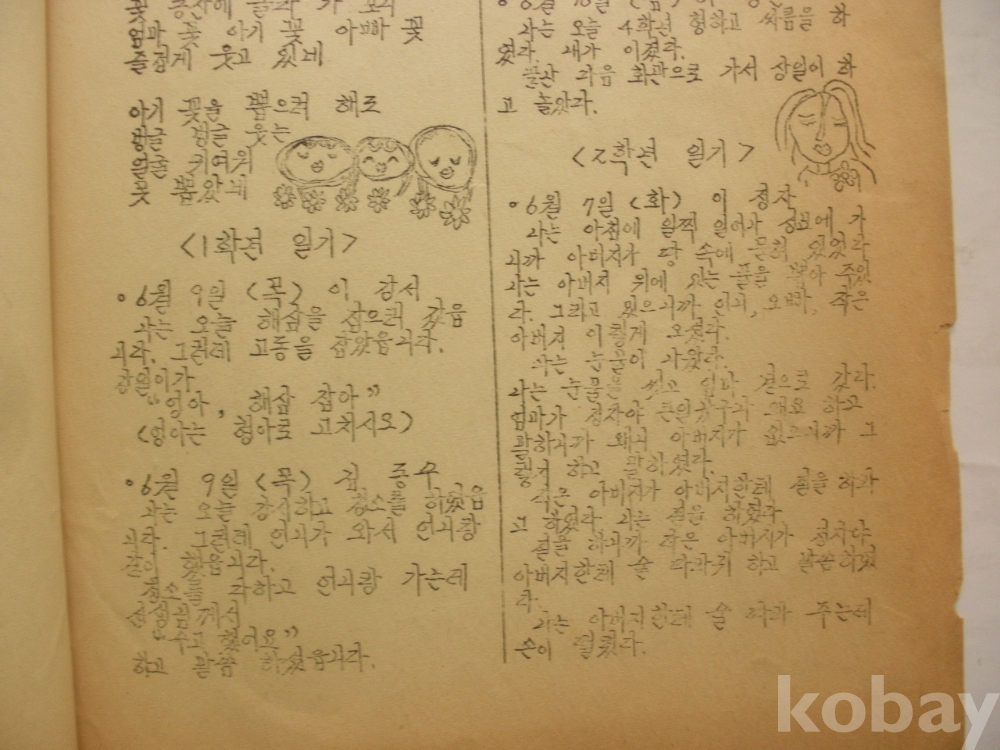 꽃 동산에 올라 가 보니
엄마 꽃 아기 꽃 아빠 꽃
즐겁게 웃고 있네
아기 꽃을 뽑으려 해도
방글 방글 웃는
얼굴 귀여워
못 뽑았네
<1학년 일기>
·6월 9일 (목) 이 강서
나는 오늘 해삼을 잡으러 갔읍
니다. 그런데 고동을 잡았읍니다.
상일이가
"엉아, 해삼 잡아"
(엉아는 형아로 고치시오)
·6월 9일 (목) 김 종수
나는 오늘 강서하고 청소를 하였읍
니다. 그런데 언니가 와서 언니랑
같이 했읍니다.
청소를 다하고 언니랑 가는데
선생님께서
"수고 했어요"
하고 말씀 하셨읍니다.
나는 오늘 4학년 형하고 씨름을 하
였다. 내가 이겼다.
끝난 다음 회관으로 가서 상일이 하
고 놀았다.
<2학년 일기>
·6월 7일 (화) 이 정자
나는 아침에 일찍 일어나 정묘에 가
니까 아버지가 땅 속에 묻혀 있었다
나는 아버지 위에 있는 풀을 뽑아 주었
다. 그리고 있으니까 언니, 오빠, 작은
아버지 이렇게 오셨다.
나는 눈물이 나왔다.
나는 눈물을 씻고 엄마 곁으로 갔다.
엄마가 정자야 하고
말하니까 왜냐 아버지가 없으니까 그
렇지 하고 말하였다.
작은 아버지가 아버지한테 절을 하라
고 하였다. 나는 절을 하였다
절을 하니까 작은 아버지가 정자야
아버지한테 술 따라줘 하고 말씀하였
다.
나는 아버지한테 술 따라 주는데
손이 떨렸다.
kobay